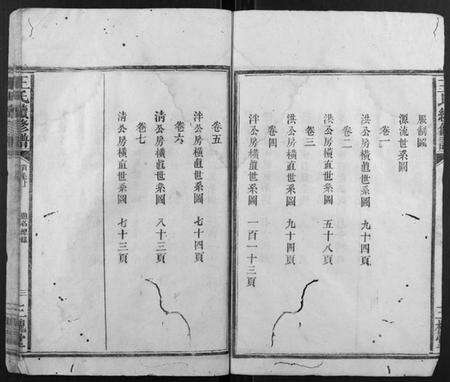 服制圖
源流世系圖
卷一
洪公房橫直世系圖 九十四頁
卷二
洪公房橫直世系圖 五十八頁
卷三
洪公房橫直世系圖 九十四頁
卷四
泮公房橫直世系圖 一百一十三頁
卷五
泮公房橫直世系圖 七十四頁
卷六
清公房橫直世系圖 八十三頁
卷七
清公房橫直世系圖 七十三頁
王氏續修譜